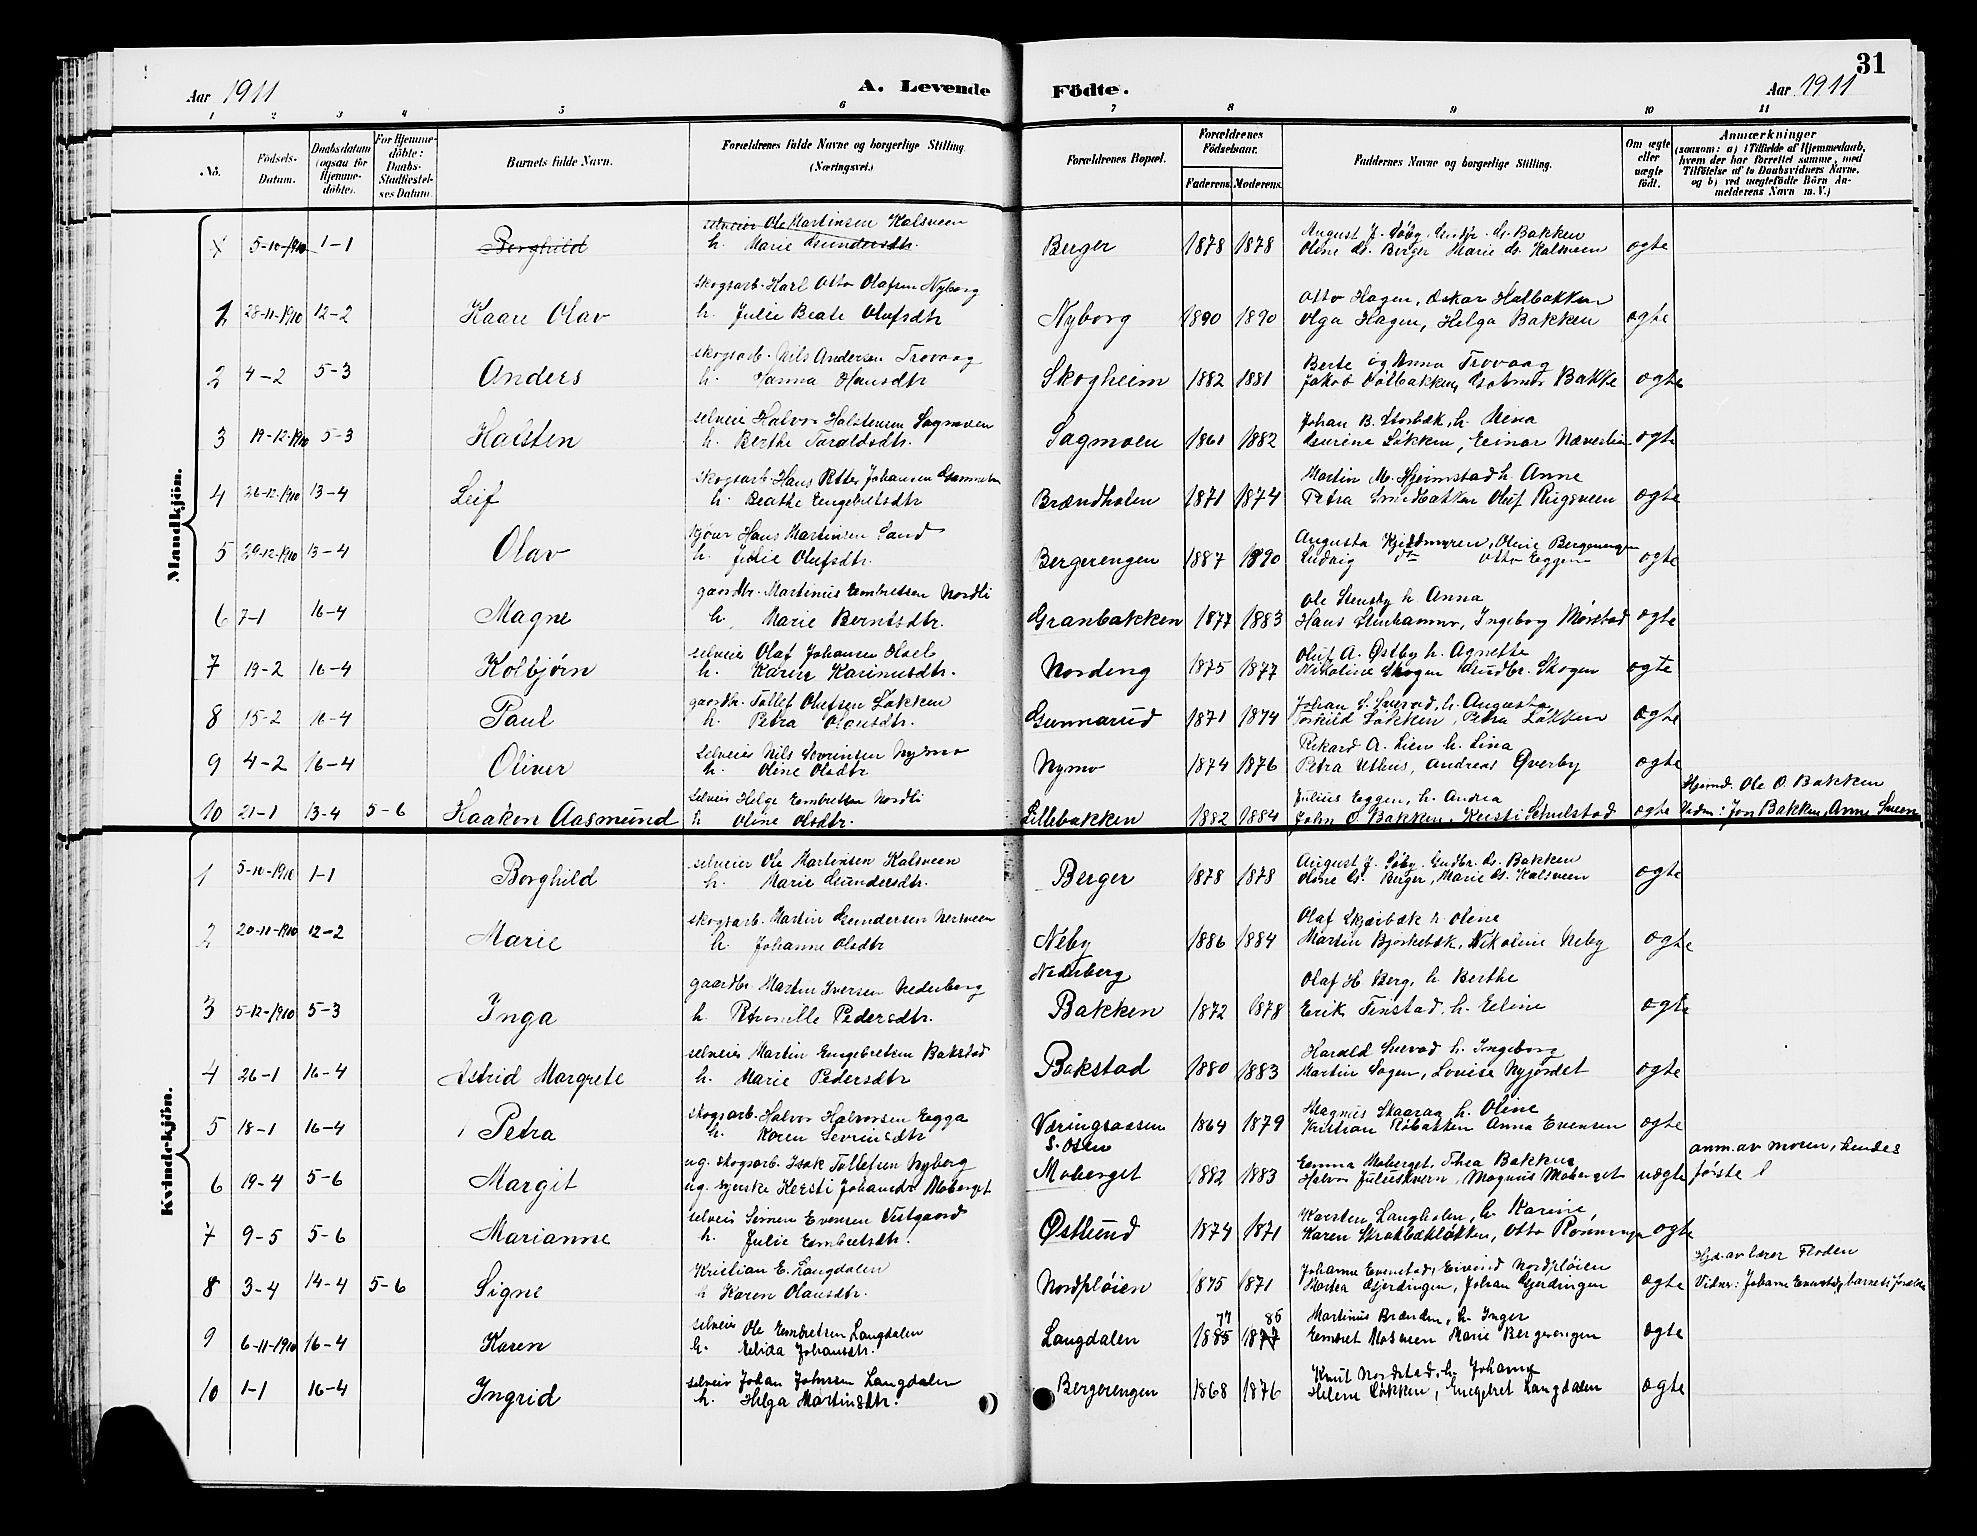 31
Aar 1911
A. Levende Födte.
Aar 1911
1 2 3 4 5 6 7 8 9 10 11
No.
Födsels-Datum.
Daabsdatum (ogsaa för Hjemme-döbte).
For Hjemme-döbte: Daabs-Stadfæstel-ses Datum.
Barnets fulde Navn.
Forældrenes fulde Navne og borgerlige Stilling (Næringsvei.)
Forældrenes Bopæl.
Forældrenes Födselsaar.
Faderens. Moderens.
Faddernes Navne og borgerlige Stilling.
Om ægte eller uægte födt.
Anmærkninger (saasom: a) i Tilfælde af Hjemmedaab, hvem der har forrettet samme, med Tilföielse af to Daabsvidners Navne, og b) ved uægtefödte Börn An-melderens Navn m. V.)
Mandkjön.
selveier Ole Martinsen Kalsveen August J. Söby, Gudbr. G. Bakken
5-10-1910 1-1 Borghild h. Marie Gundersdtr. Berger 1878 1878 Oline G. Berger Marie G. Kalsveen ægte
skogsarb. Karl Otto Olafsen Nyborg Otto Hagen, Oskar Hólbakken
1 28-11-1910 12-2 Kaare Olav h. Julie Beate Olufsdtr Nyborg 1890 1890 Olga Hagen, Helga Bakken ægte
skogsarb. Nils Andersen Trovaag Berte og Anna Trovaag
2 4-2 5-3 Anders h. Hanna Hansdtr Skogheim 1882 1881 Jakob Bakke ægte
selveie Halvor Halstensen Sagmoen Johan B. Storbæk, h. Nina
3 19-12-1910 5-3 Halsten h. Berthe Taraldsdtr. Sagmoen 1861 1882 Løkken, Einar ægte
skogsarb. Hans Petter Johansen Martin M. Hjeimstad h. Anne
4 26-12-1910 13-4 Leif h. Beathe Engebretsdtr Brændholen 1871 1874 Petra Smedbakken Oluf Rugsveen ægte
Hans Martinsen Sand Augusta Kjildmyren, Oline Bergerengen
5 29-12-1910 13-4 Olav h. Julie Olufsdtr. Bergerengen 1887 1890 Ludvig do Otto Eggen ægte
gaardbr. Martinus Embretsen Nordli Ole Stensby h. Anna
6 7-1 16-4 Magne h. Marie Berntsdtr. Granbakken 1877 1883 Hans Stenhammer, Ingeborg Mørstad ægte
selveier Olaf Johansen Oluf A. Østby h. Agnette
7 19-2 16-4 Kolbjørn h. Karen Karinusdtr. Nordeng 1875 1877 Nikoline Skogen Gudbr. Skogen ægte
gaardbr. Tollef Olufsen Løkken Johan h. Augusta
8 15-2 16-4 Paul h. Petra Olausdtr. Gunnarud 1871 1874 Torkild Løkken, Petra Løkken ægte
selveier Nils Sevrinsen Nymo Rikard A. Lien h. Lina
9 4-2 16-4 Oliver h. Oline Olsdtr Nymo 1874 1876 Petra Uthus, Andreas Øverby ægte
selveier Helge Embretsen Nordli Julius Eggen, h. Andrea Hjemd. Ole O. Bakken
10 21-1 13-4 5-6 Haakon Aasmund h. Oline Olsdtr. Lillebakken 1882 1884 John O. Bakken, Kersti Schulstad ægte Vidner: Jon Bakken, Anne
Kvindekjön.
selveier Ole Martinsen Kalsveen August J. Söby, Gudbr. G. Bakken
1 5-10-1910 1-1 Borghild h. Marie Gundersdtr. Berger 1878 1878 Oline G. Berger, Marie G. Kalsveen ægte
skogsarb. Martin Gundersen Nerveen Olaf Skjærbæk h. Oline
2 20-11-1910 12-2 Marie h. Johanne Olsdtr Neby 1886 1884 Martin Bjørkebæk, Nikoline Neby ægte
gaardbr. Martin Iversen Nederberg Nederberg Olaf H. Berg, h. Berthe
3 5-12-1910 5-3 Inga h. Petronille Pedersdtr. Bakken 1872 1878 Erik Finstad, h. Eline ægte
selveier Martin Engebretsen Bakstad Harald h. Ingeborg
4 26-1 16-4 Astrid Margrete h. Marie Pedersdtr Bakstad 1880 1883 Martin Sagen, Lovise Nyjordet ægte
skogsarb. Halvor Halvorsen Egga Magnus Skaaraa h. Oline
5 18-1 16-4 Petra h. Karen Sevrinsdtr Væringsaasen S. Osen 1864 1879 Kristian Anna Evensen ægte
ug. skogsarb. Isak Tollefsen Nyberg Emma Moberget, Thea Bakken anm. av moren, hendes
6 19-4 5-6 Margit ug. Kersti Johansdtr Moberget Moberget 1882 1883 Halvor Julusmoen, Magnus Moberget uægte første
selveier Simen Evensen Vestgaard Karsten Langholen, h. Karine,
7 9-5 5-6 Marianne h. Julie Embretsdtr. Østlund 1874 1871 Karen Otto Rønningen ægte
Kristian E. Langdalen Johanne Evenstad, Eivind Nordpløien Hjd. av lærer Floden
8 3-4 14-4 5-6 Signe h. Karen Olausdtr. Nordpløien 1875 1871 Martea Gjerdingen, Johan Gjerdingen ægte Vidner: Johanne Evenstad, barnets forældre
selveier Ole Embretsen Langdalen 77 86 Martinus Brænden, h. Inger
9 6-11-1910 16-4 Karen h. Elida Johansdtr. Langdalen 1885 1877 Embret Mosveen Marie Bergerengen ægte
selveier Johan Johnsen Langdalen Knut Nordstad, h. Johanne
10 1-1 16-4 Ingrid h. Helga Martinsdtr. Bergerengen 1868 1876 Helene Løkken, Engebret Langdalen ægte